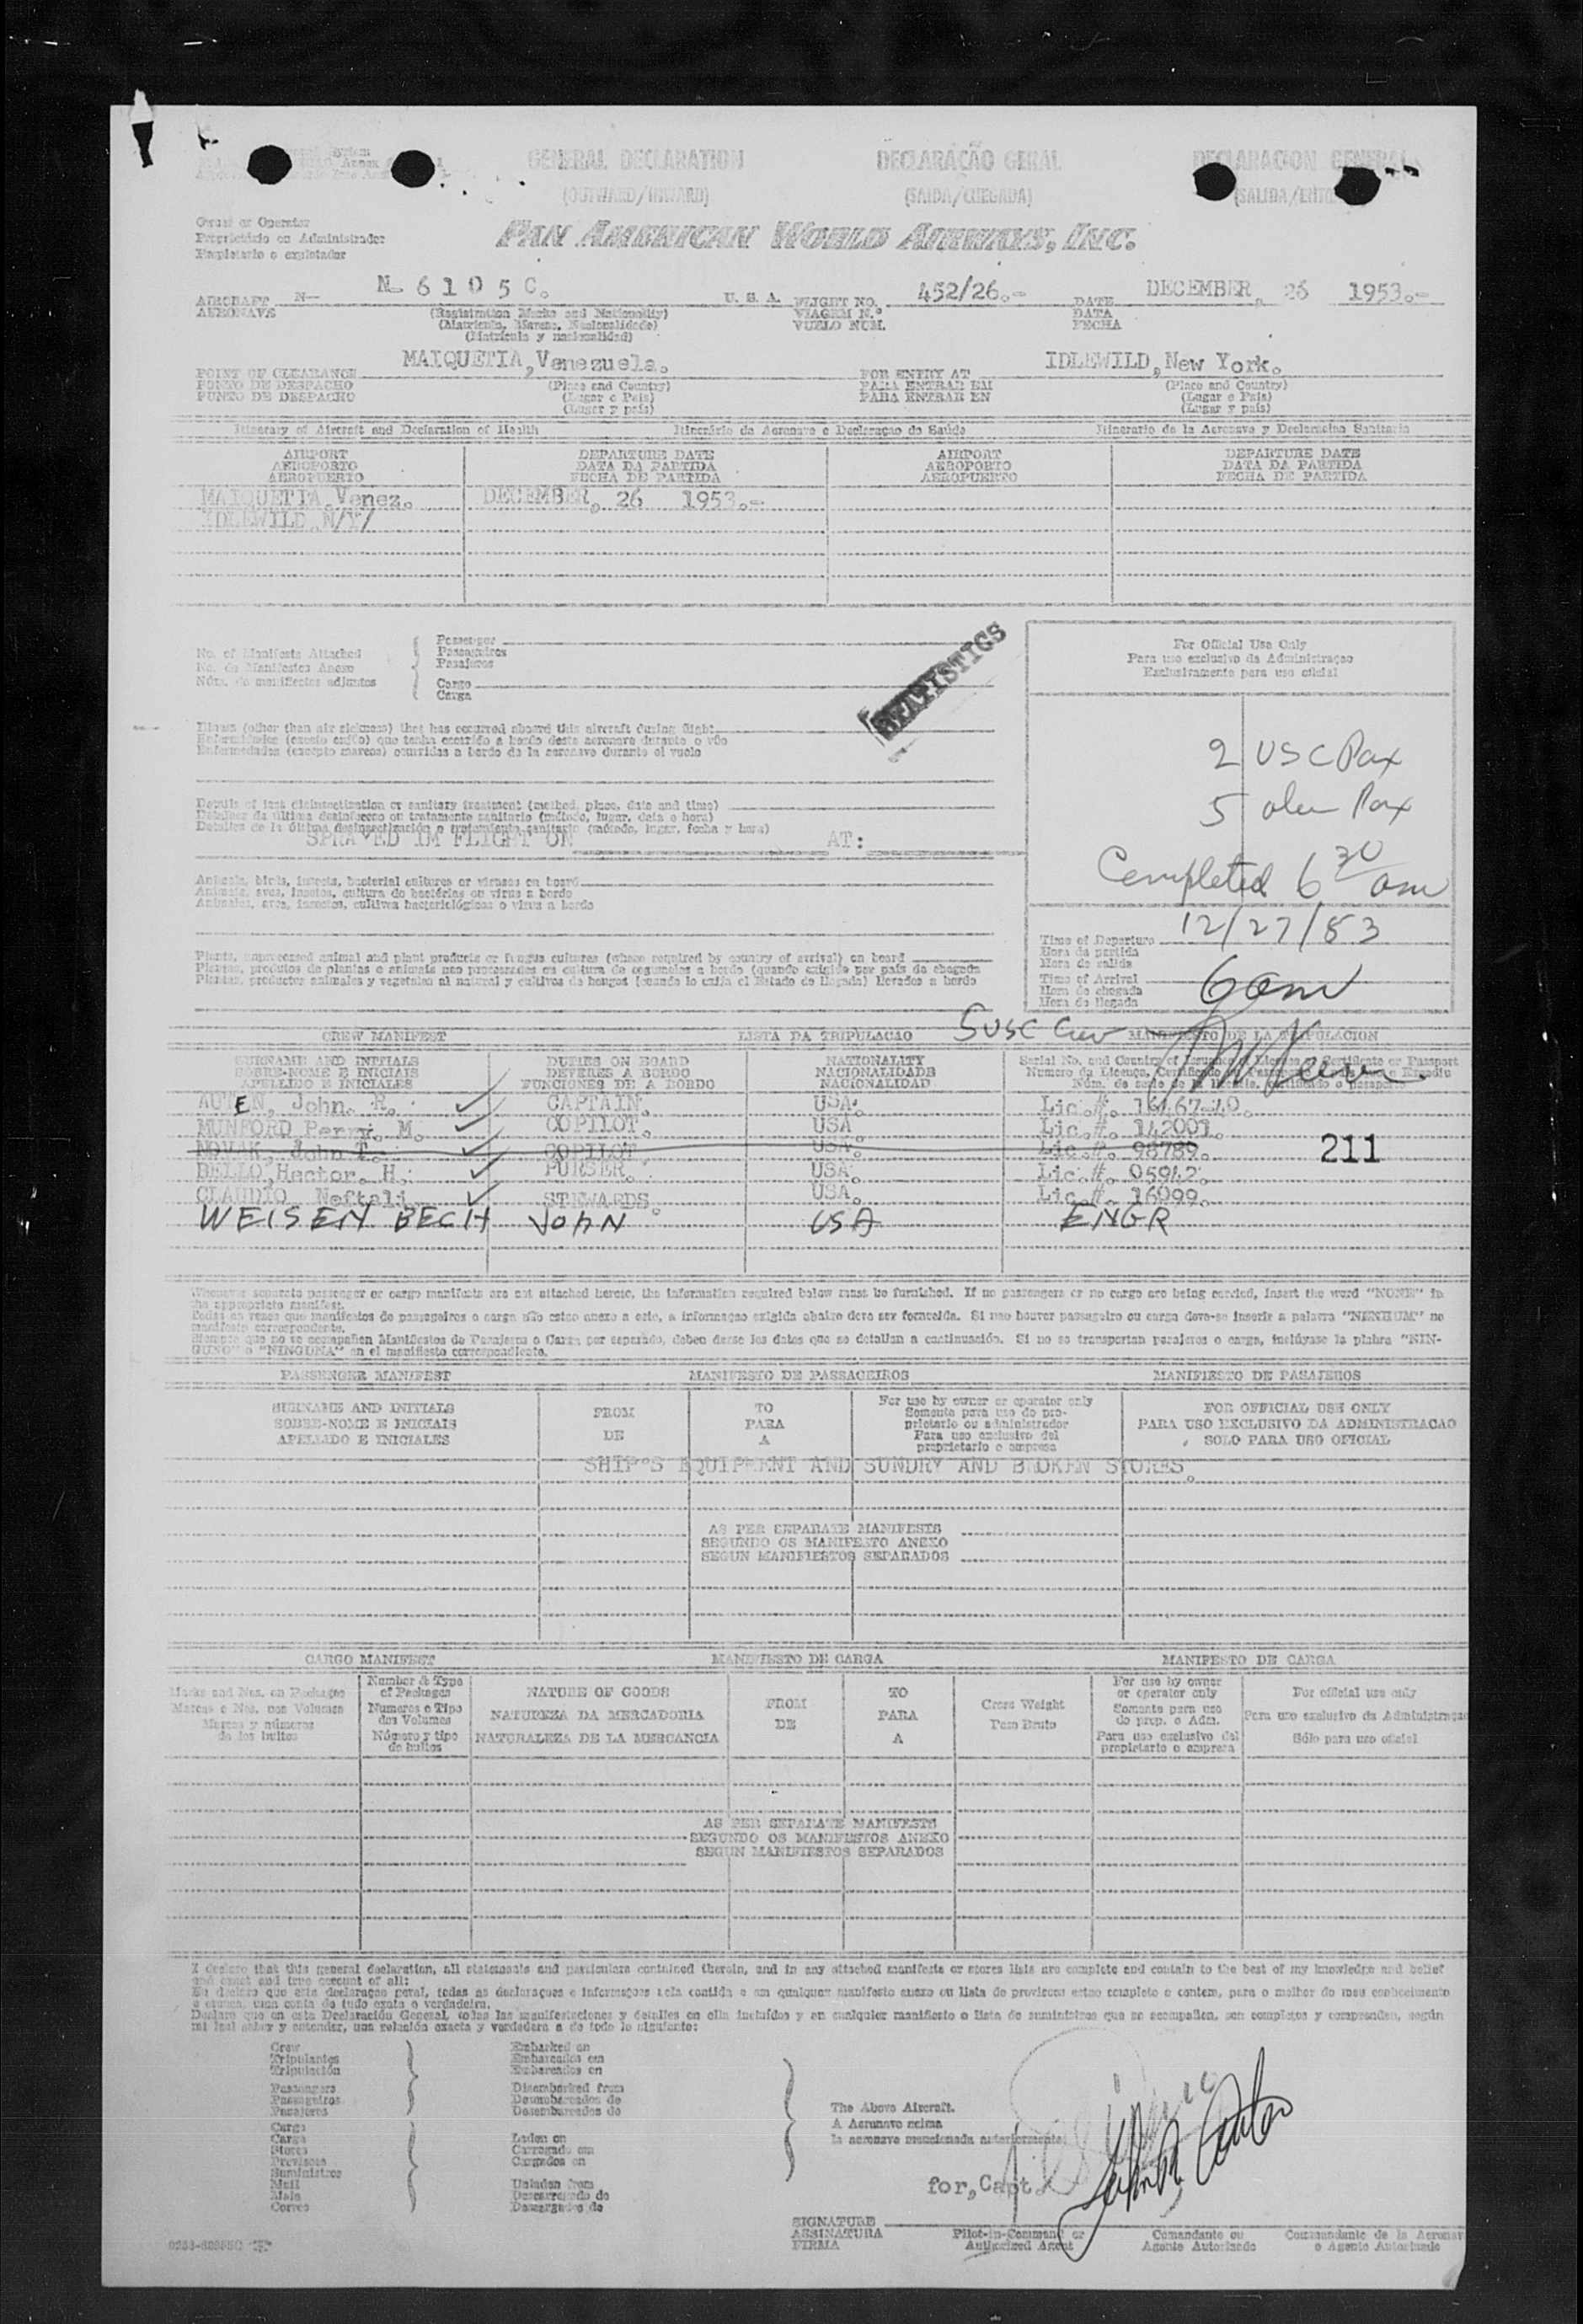 GENERAL DECLARATION DECLARAÇÃO GERAL DECLARACION GENERAL
(OUTWARD/INWARD) (SAIDA/CHEGADA) (SALIDA/
Owner or Operator
Proprietário ou Administrador
Propietario o explotador
PAN AMERICAN WORLD AIRWAYS, INC.
AIRCRAFT N— N- 6 1 0 5 C. U. S. A. FLIGHT NO. 452/26.- DATE DECEMBER, 26 1953.-
AERONAVE (Registration Marks and Nationality) VIAGEM N.º DATA
VUELO NUM. FECHA
(Matrícula y nacionalidad)
POINT OF CLEARANCE MAIQUETIA, Venezuela. FOR ENTRY AT IDLEWILD, New York.
PONTO DE DESPACHO (Place and Country) PARA ENTRAR EM (Place and Country)
PUNTO DE DESPACHO (Lugar e País) PARA ENTRAR EN (Lugar e País)
(Lugar y país) (Lugar y país)
Itinerary of Aircraft and Declaration of Health Itinerário da Aeronave e Declaraçao de Saúde Itinerario de la Aeronave y Declaracion Sanitaria
AIRPORT DEPARTURE DATE AIRPORT DEPARTURE DATE
AEROPORTO DATA DA PARTIDA AEROPORTO DATA DA PARTIDA
AEROPUERTO FECHA DE PARTIDA AEROPUERTO FECHA DE PARTIDA
MAIQUETIA, Venez. DECEMBER, 26 1953.-
IDLEWILD, N/Y/
No. of Manifests Attached Passenger
No. de Manifestos Anexo Passageiros
Núm. de manifiestos adjuntos Pasajeros
Cargo
Carga
STATISTICS
For Official Use Only
Para uso exclusivo da Administraçao
Exclusivamente para uso oficial
Illness (other than air sickness) that has occurred aboard this aircraft during flight
Enfermidades (exceto enjôo) que tenha ocorrido a bordo desta aeronave durante o vôo
Enfermedades (excepto mareos) ocurridas a bordo de la aeronave durante el vuelo
2 USC Pax
5 alien Pax
Details of last disinsectization or sanitary treatment (method, place, date and time)
Detalhes da última desinfeccao ou tratamento sanitario (método, lugar, data e hora)
Detalles de la última desinsectización o tratamiento sanitario (método, lugar, fecha y hora)
SPRAYED IM FLIGHT ON AT:
Completed 6 30 am
Animals, birds, insects, bacterial cultures or viruses on board
Animais, aves, insetos, cultura de bactérias ou virus a bordo
Animales, aves, insectos, cultivos bacteriológicos o virus a bordo
12/27/53
Time of Departure
Hora da partida
Hora de salida
Plants, unprocessed animal and plant products or fungus cultures (where required by country of arrival) on board
Plantas, produtos de plantas e animais nao processados ou cultura de cogumelos a bordo (quando exigido por pais de chegada
Plantas, productos animales y vegetales al natural y cultivos de hongos (cuando lo exija el Estado de llegada) llevados a bordo
Time of Arrival 6am
Hora da chegada
Hora de llegada
CREW MANIFEST LISTA DA TRIPULACAO 5 USC Crew MANIFIESTO DE LA TRIPULACION
SURNAME AND INITIALS DUTIES ON BOARD NATIONALITY
SOBRE-NOME E INICIAIS DEVERES A BORDO NACIONALIDADE
APELLIDO E INICIALES FUNCIONES DE A BORDO NACIONALIDAD
AUTEN, John. R. CAPTAIN. USA. Lic.#. 16467-40.
MUNFORD Perry. M. COPILOT. USA Lic.#. 142001.
NOVAK, John T. COPILOT USA. Lic.#. 98789.
211
BELLO, Hector. H. PURSER. USA. Lic.#. 05942.
CLAUDIO Neftali STEWARDS. USA. Lic.#. 16099.
WEISEN BECH JOHN USA ENGR
Whenever separate passenger or cargo manifests are not attached hereto, the information required below must be furnished. If no passengers or no cargo are being carried, insert the word "NONE" in
the appropriate manifest.
Todas as vezes que manifestos de passageiros o carga não estao anexo a este, a informaçao exigida abaixo deve ser fornecida. Si nao houver passageiro ou carga deve-se inserir a palavra "NENHUM" no
manifesto correspondente.
Siempre que no se acompañen Manifiestos de Pasajeros o Carga por separado, deben darse los datos que se detallan a continuación. Si no se transportan pasajeros o carga, inclúyase la plabra "NIN-
GUNO" o "NINGUNA" en el manifiesto correspondiente.
PASSENGER MANIFEST MANIFESTO DE PASSAGEIROS MANIFIESTO DE PASAJEROS
SURNAME AND INITIALS FROM TO For use by owner or operator only FOR OFFICIAL USE ONLY
SOBRE-NOME E INICIAIS DE PARA Somente para uso do pro- PARA USO EXCLUSIVO DA ADMINISTRACAO
APELLIDO E INICIALES A prietario ou administrador SOLO PARA USO OFICIAL
Para uso exclusivo del
propietario o empresa
SHIP'S EQUIPMENT AND SUNDRY AND BROKEN STORES.
AS PER SEPARATE MANIFESTS
SEGUNDO OS MANIFESTO ANEXO
SEGUN MANIFIESTOS SEPARADOS
CARGO MANIFEST MANIFIESTO DE CARGA MANIFESTO DE CARGA
Marks and Nos. on Packages Number & Type of Packages NATURE OF GOODS FROM TO Gross Weight For use by owner or operator only For official use only
Marcas e Nos. nos Volumes Numeros e Tipo dos Volumes NATUREZA DA MERCADORIA DE PARA Peso Bruto Somente para uso do prop. o Adm. Para uso exclusivo da Administraçao
Marcas y números de los bultos Número y tipo de bultos NATURALEZA DE LA MERCANCIA A Para uso exclusivo del propietario o empresa Sólo para uso oficial
AS PER SEPARATE MANIFESTS
SEGUNDO OS MANIFESTOS ANEXO
SEGUN MANIFIESTOS SEPARADOS
I declare that this general declaration, all statements and particulars contained therein, and in any attached manifests or stores lists are complete and contain to the best of my knowledge and belief
and exact and true account of all:
Crew Embarked on
Tripulantes Embarcados em
Tripulación Embarcados en
Passengers Disembarked from
Passageiros Desembarcados de
Pasajeros Desembarcados de
The Above Aircraft.
A Aeronave acima
la aeronave mencionada anteriormente
Cargo
Carga Laden on
Stores Carregado em
Cargados en
Suministros
Mail Unladen from
Mala Descarregado de
Correo Descargados de
for, Capt. John R Auten
SIGNATURE
ASSINATURA Pilot-in-Command or Comandante ou Commandante de la Aeronave
FIRMA Authorized Agent Agente Autorizado o Agente Autorizado